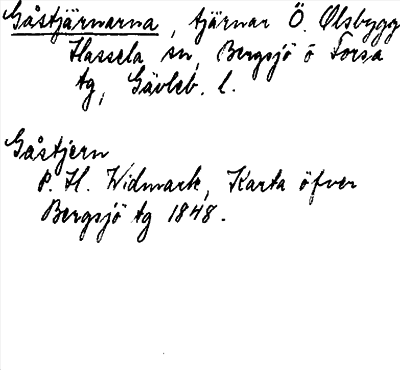 Gåstjärnarna, tjärnar Ö. Ölsbygg
Hassela sn, Bergsjö o Forsa
tg, Gävleb. l.
Gåstjern
P. H. Widmark, Karta öfver
Bergsjö tg 1848.